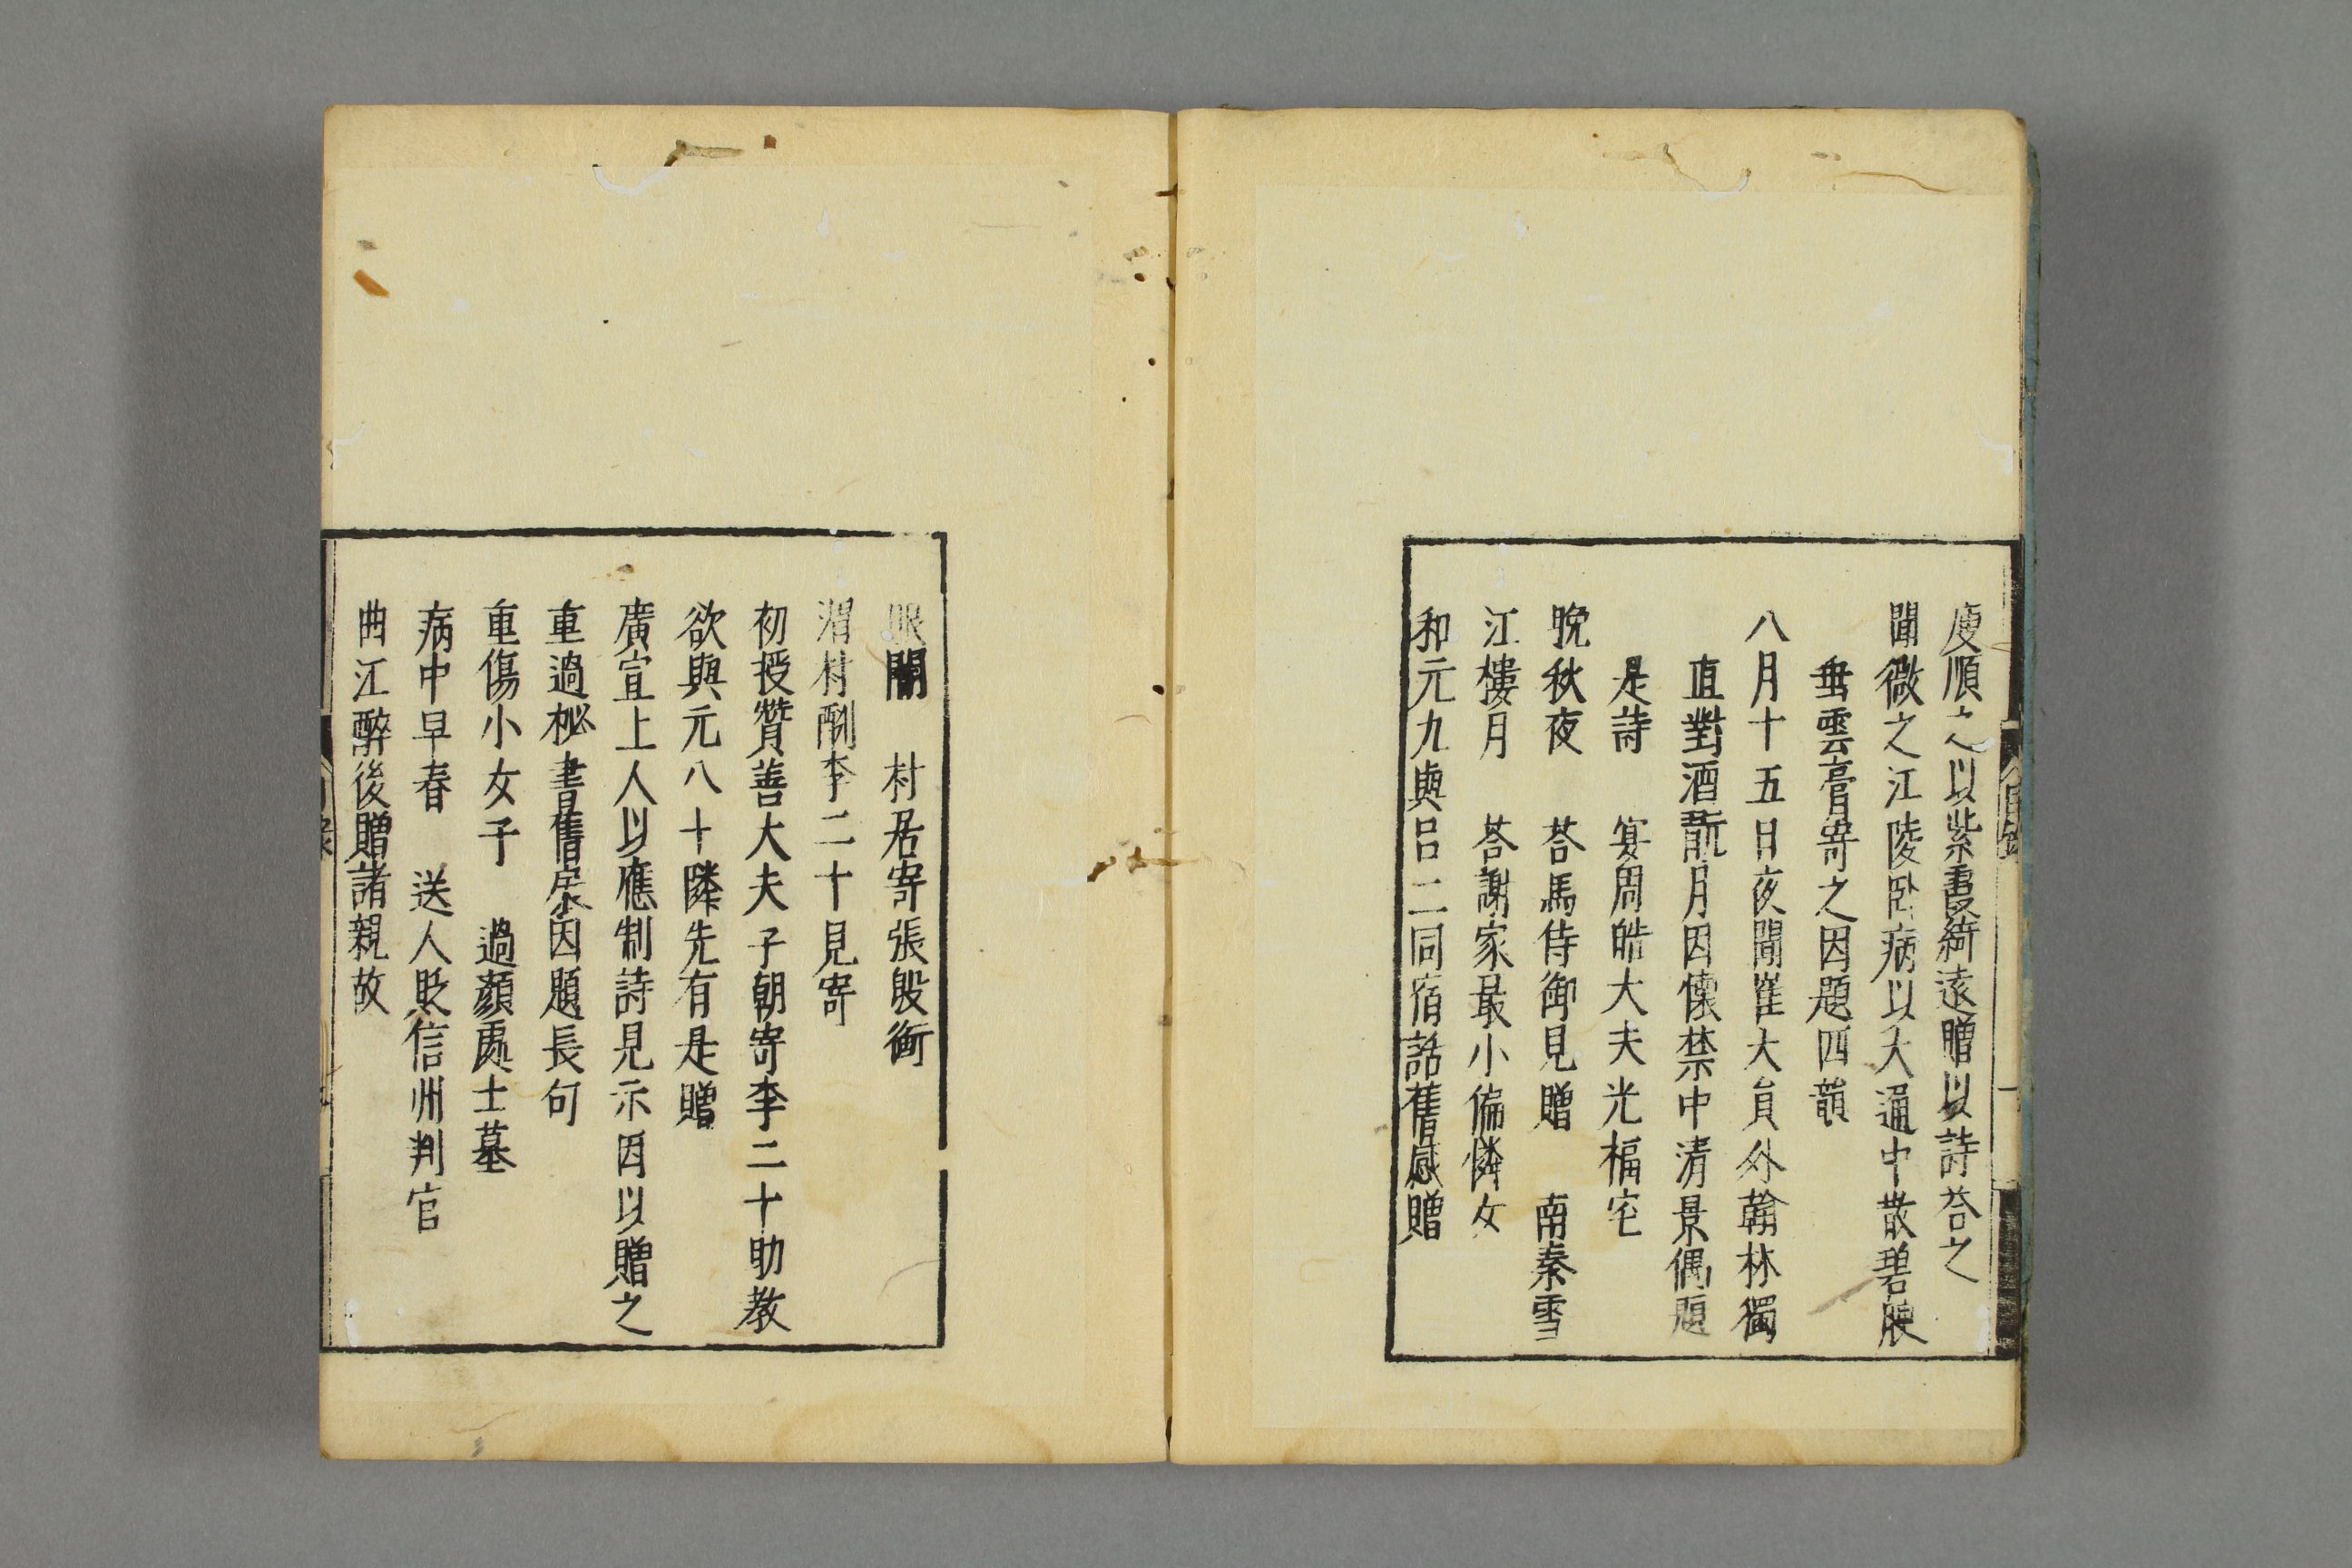 庾順之以紫霞綺遠贈以詩荅之
聞微之江陵卧病以大通中散碧腴
垂雲膏寄之因題四韻
八月十五日夜聞崔大員外翰林獨
直對酒翫月因懷禁中清景偶題
是詩　宴周皓大夫光福宅
晚秋夜　荅馬侍御見贈　南秦雪
江樓月　荅謝家最小偏憐女
和元九與吕二同宿話舊感贈
眼闇　村居寄張殷衡
渭村酬李二十見寄
初授贊善大夫子朝寄李二十助教
欲與元八十隣先有是贈
廣宣上人以應制詩見示因以贈之
重過秘書舊房因題長句
重傷小女子　過顏處士墓
病中早春　送人貶信州判官
曲江醉後贈諸親故